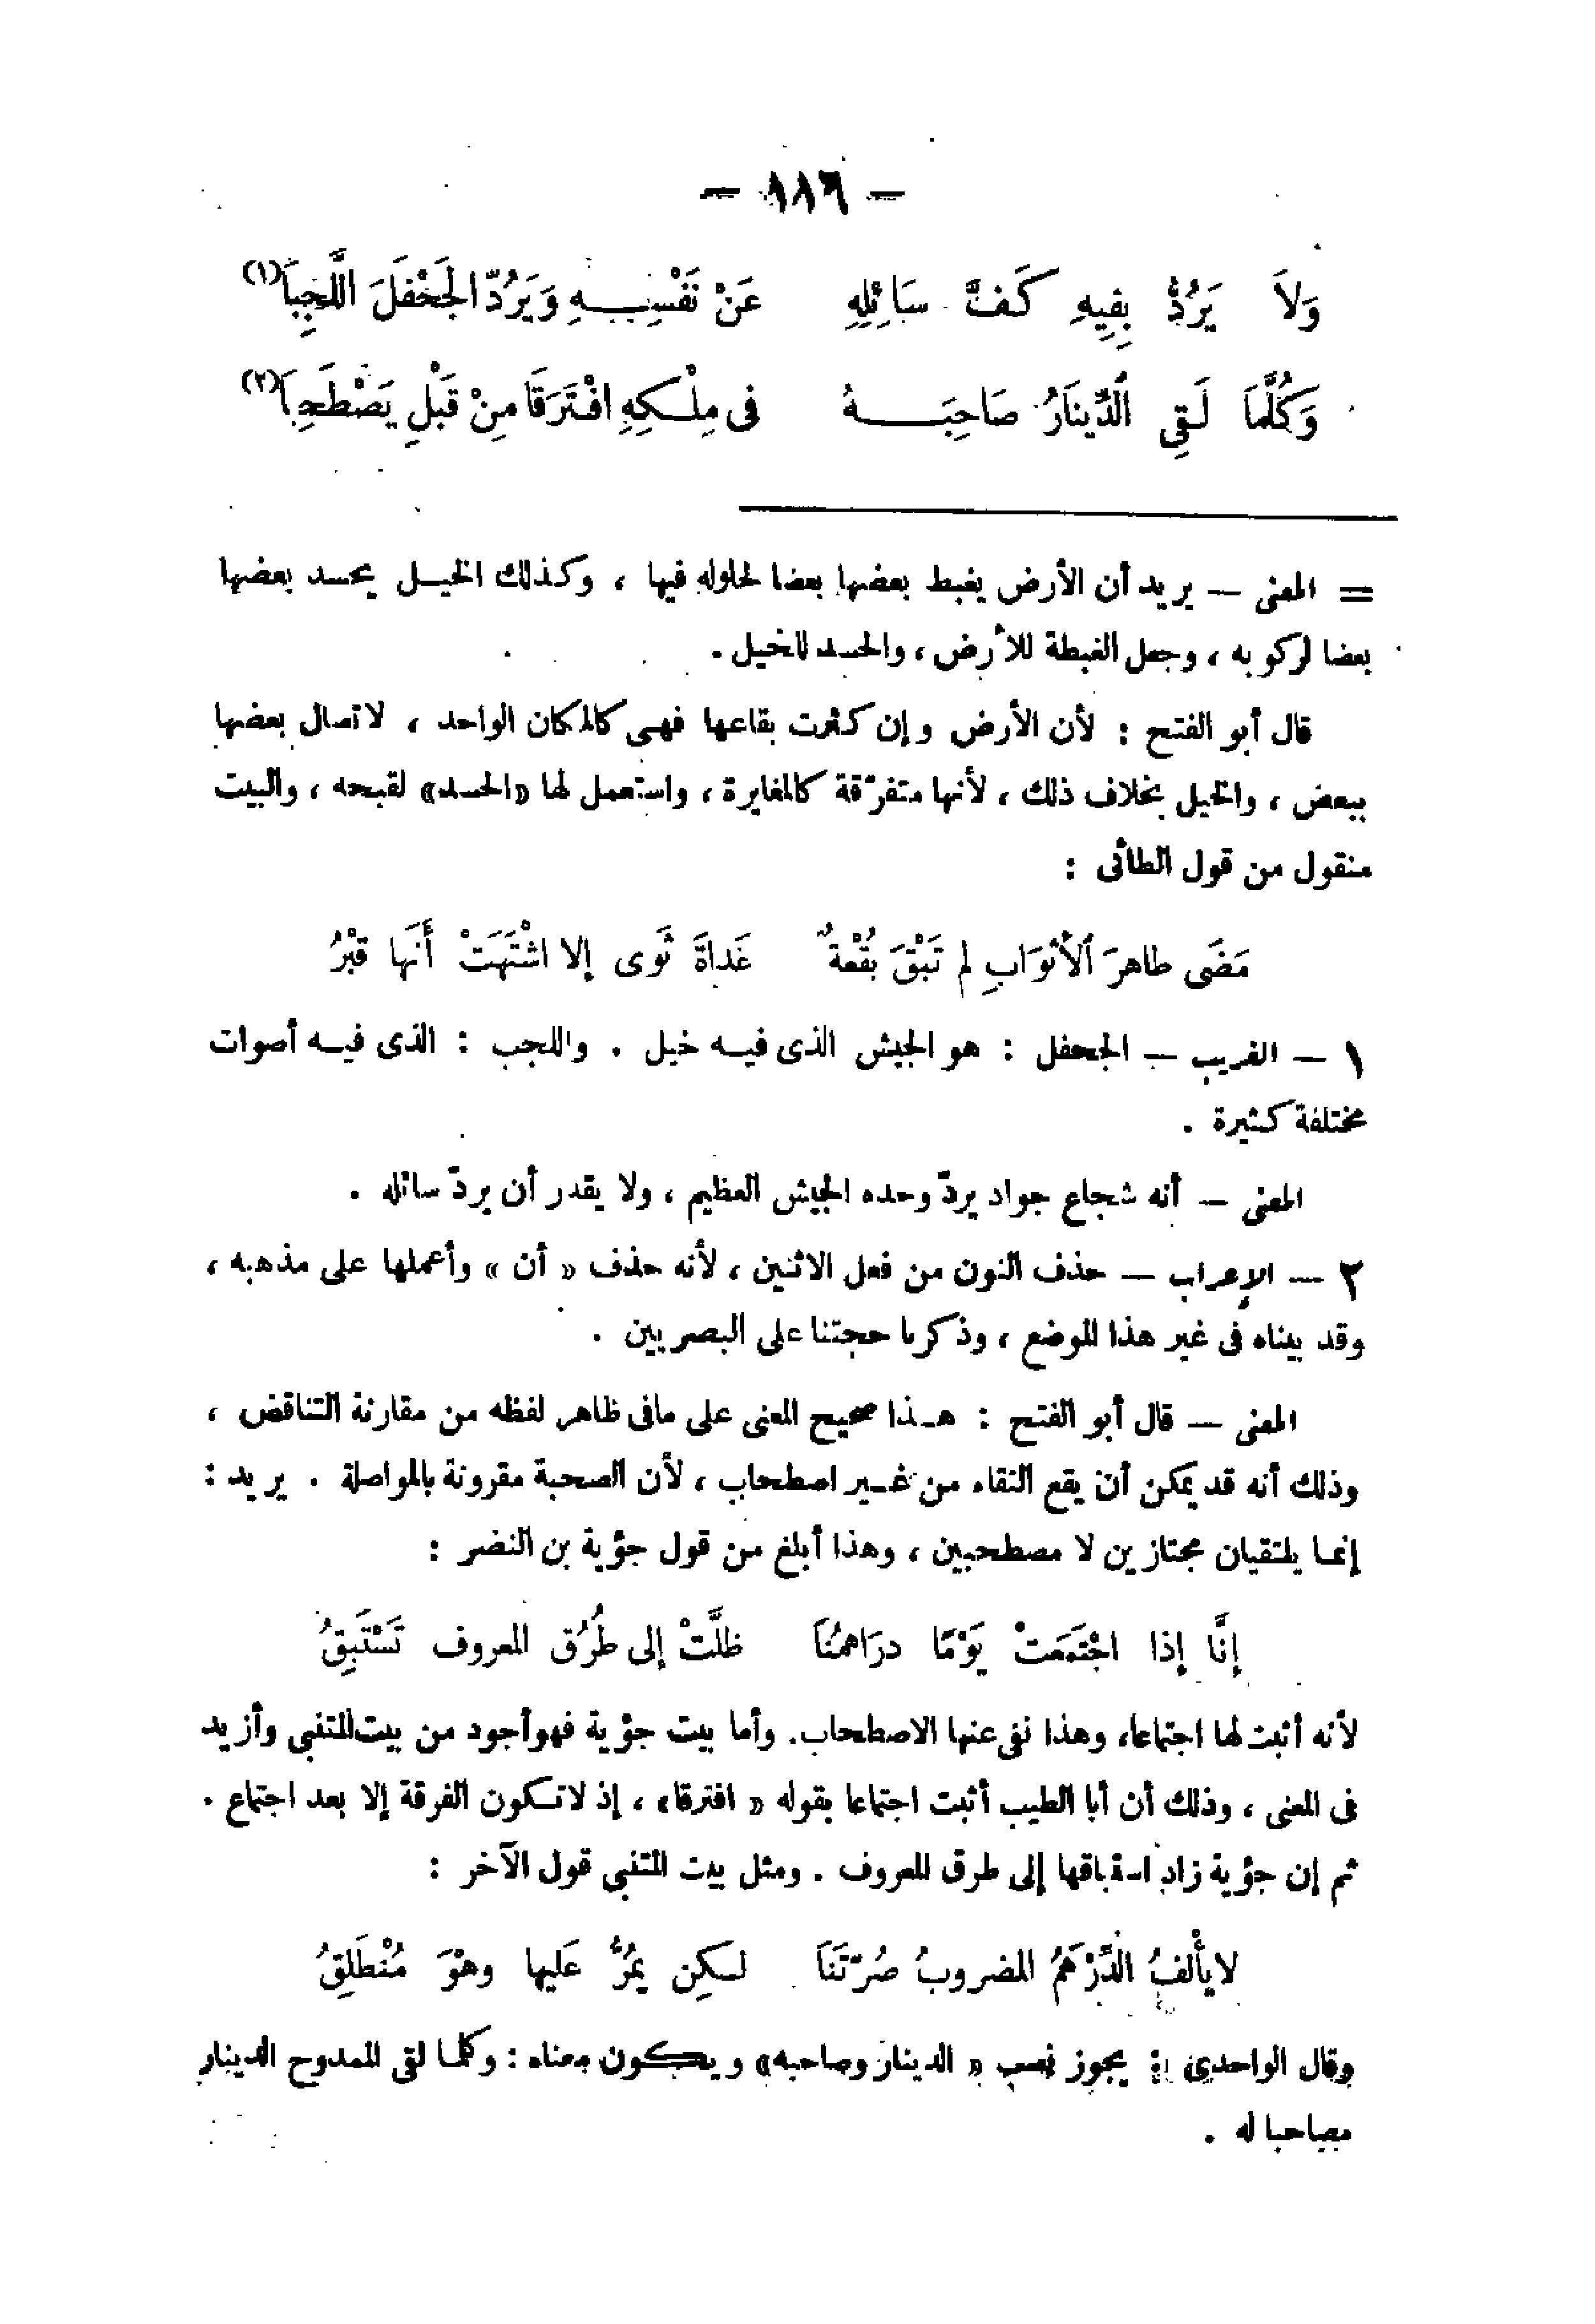 — ١٨٦ —
وَلاَ يَرُدُّ بِفِيهِ كَفَّ سَائِلِهِ عَنْ نَفْسِهِ وَيَرُدّ الجَحْفَلَ اللَّجِبَا (١)
وَكُلَّمَا لَقِى الدِّينَارُ صَاحِبَهُ فى مِلْكِهِ افْتَرَقَا مِنْ قَبْلِ يَصْطَحِبَا (٢)
= المعنى — يريد أن الأرض يغبط بعضها بعضا لحلوله فيها ، وكذلك الخيل يحسد بعضها
بعضا لركوبه ، وجعل الغبطة للأرض ، والحسد للخيل .
قال أبو الفتح : لأن الأرض وإن كثرت بقاعها فهى كالمكان الواحد ، لاتصال بعضها
ببعض ، والخيل بخلاف ذلك ، لأنها متفرّقة كالمغايرة ، واستعمل لها «الحسد» لقبحه ، والبيت
منقول من قول الطائى :
مَضَى طاهرَ الأثوَابِ لم تَبْقَ بُقْعةٌ غَداةَ ثَوى إلا اشْتَهَتْ أَنَها قبْرُ
١ — الغريب — الجحفل : هو الجيش الذى فيه خيل . واللجب : الذى فيه أصوات
مختلفة كثيرة .
المعنى — أنه شجاع جواد يردّ وحده الجيش العظيم ، ولا يقدر أن يردّ سائله .
٢ — الإعراب — حذف النون من فعل الاثنين ، لأنه حذف « أن » وأعملها على مذهبه ،
وقد بيناه فى غير هذا الموضع ، وذكرنا حجتنا على البصريين .
المعنى — قال أبو الفتح : هذا صحيح المعنى على مافى ظاهر لفظه من مقارنة التناقض ،
وذلك أنه قد يمكن أن يقع التقاء من غير اصطحاب ، لأن الصحبة مقرونة بالمواصلة . يريد :
إنما يلتقيان مجتازين لا مصطحبين ، وهذا أبلغ من قول جؤية بن النضر :
إنَّا إذا اجْتَمَعَتْ يَوْمًا درَاهمُنَا ظلَّتْ إلى طُرُق المعروف تَسْتَبِقُ
لأنه أثبت لها اجتماعا، وهذا نفى عنها الاصطحاب. وأما بيت جؤية فهو أجود من بيت المتنبى وأزيد
فى المعنى ، وذلك أن أبا الطيب أثبت اجتماعا بقوله « افترقا» ، إذ لا تكون الفرقة إلا بعد اجتماع .
ثم إن جؤية زاد استباقها إلى طرق المعروف . ومثل بيت المتنبى قول الآخر :
لا يأْلفُ الدِّرْهَمُ المضروبُ صُرّتَنَا لكِن يَمُرُّ عَليها وهْوَ مُنْطَلِقُ
وقال الواحدى : يجوز نصب « الدينار وصاحبه» ويكون معناه : وكلما لقى الممدوح الدينار
مصاحبا له .